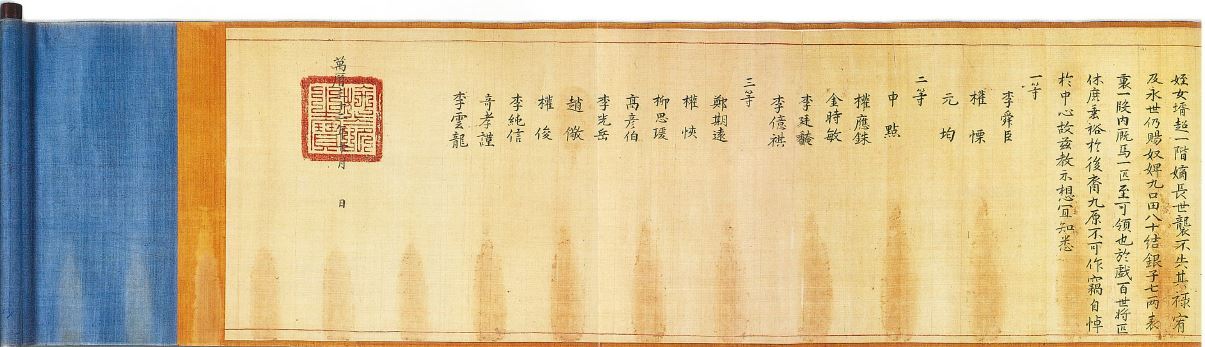 姪女壻超一階嫡長世襲不失其祿宥
及永世仍賜奴婢九口田八十結銀子七兩表
裏一段內廐馬一匹至可領也於戲百世將匹
休庶垂裕於後裔九原不可作竊自悼
於中心故玆敎示想宜知悉
一等
李舜臣
權慄
元均
二等
申點
權應銖
金時敏
李廷馣
李億祺
三等
鄭期遠
權悏
柳思瑗
高彦伯
李光岳
趙儆
權俊
李純信
奇孝謹
李雲龍
萬曆三十二年十月 日